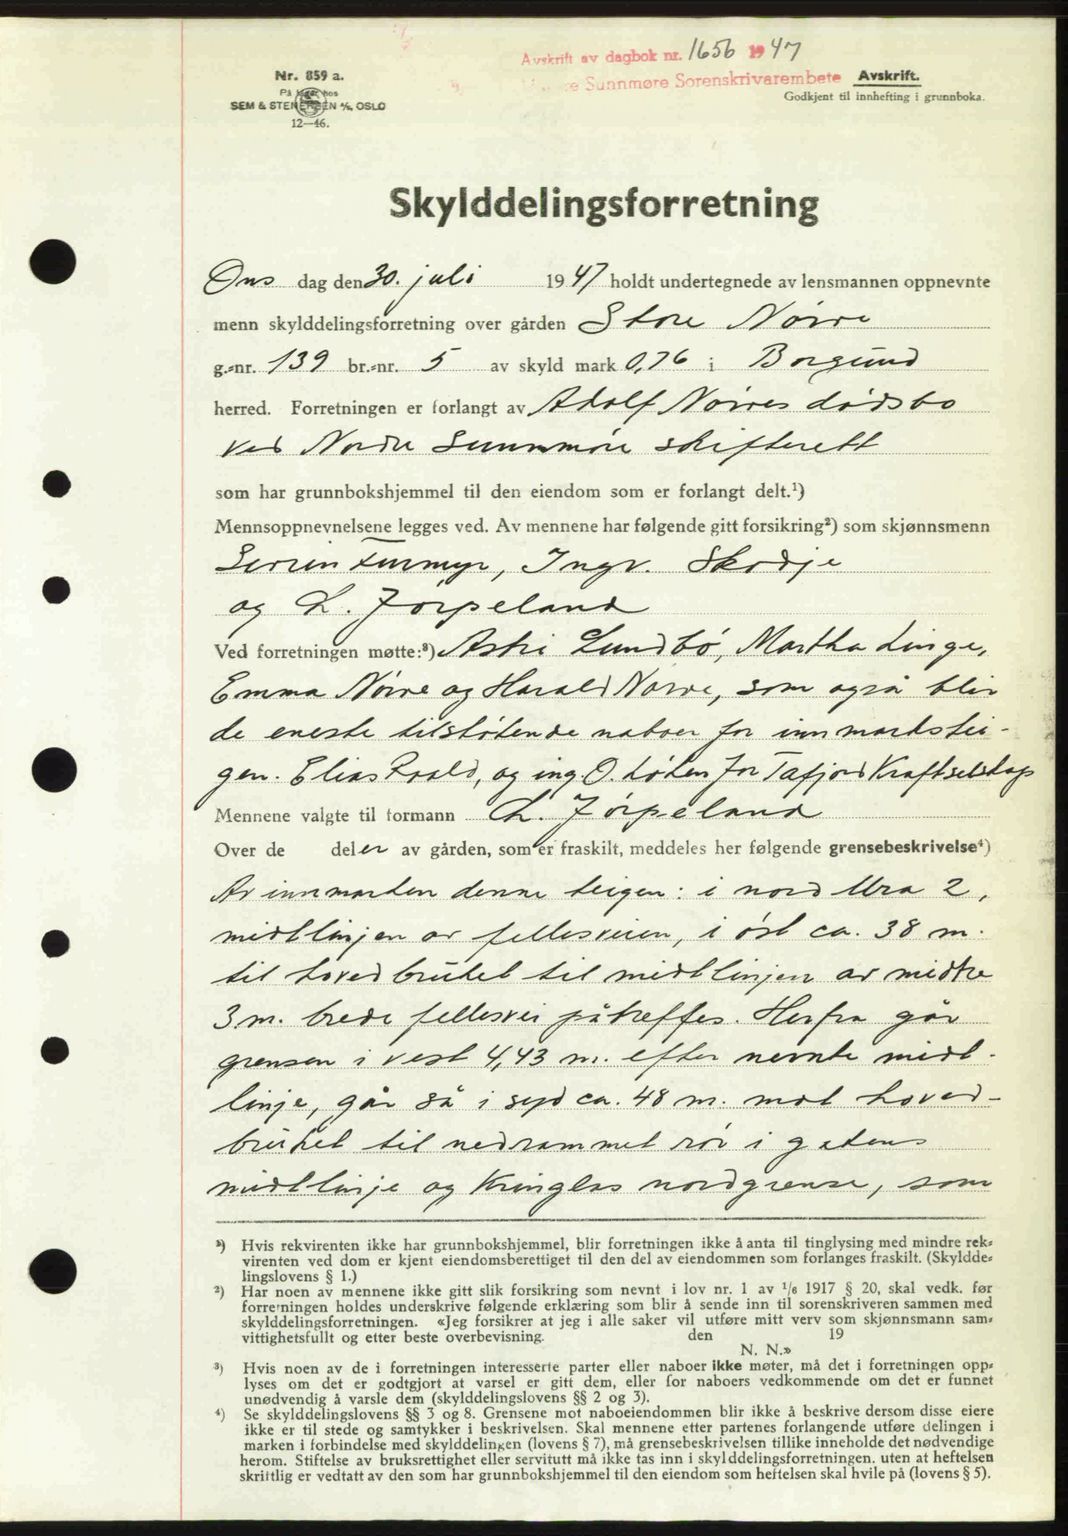 Avskrift av dagbok nr. 1656 1947
Sunnmøre Sorenskrivarembete
Nr. 859 a.
På lager hos
SEM & STENERSEN A/S, OSLO
12—46.
Avskrift.
Godkjent til innhefting i grunnboka.
Skylddelingsforretning
Ons dag den 30. juli 1947 holdt undertegnede av lensmannen oppnevnte
menn skylddelingsforretning over gården Store Nørve
g.=nr. 139 br.=nr. 5 av skyld mark 0,76 i Borgund
herred. Forretningen er forlangt av Adolf Nørves dødsbo
ved Nordre Sunnmøre skifterett
som har grunnbokshjemmel til den eiendom som er forlangt delt.¹)
Mennsoppnevnelsene legges ved. Av mennene har følgende gitt forsikring²) som skjønnsmenn
Furmyr, Ingv. Skodje
og L. Jørpeland
Ved forretningen møtte:³) Astri Lundbø, Martha Linge,
Emma Nørve og Harald Nørve, som også blir
de eneste tilstøtende naboer for innmarkstei-
gen. Elias Roald, og ing. O. Løken for Tafjord Kraftselskap
Mennene valgte til formann L. Jørpeland
Over de deler av gården, som er fraskilt, meddeles her følgende grensebeskrivelse⁴)
Av innmarken denne teigen: i nord Ura 2,
midtlinjen av fellesveien, i øst ca. 38 m.
til hovedbruket til midtlinjen av midtre
3 m. brede fellesvei påtreffes. Herfra går
grensen i vest 4,43 m. efter nevnte midt-
linje, går så i syd ca. 48 m. mot hoved-
bruket til nedrammet rør i gatens
midtlinje og Kringlas nordgrense, som
¹) Hvis rekvirenten ikke har grunnbokshjemmel, blir forretningen ikke å anta til tinglysing med mindre rek=
virenten ved dom er kjent eiendomsberettiget til den del av eiendommen som forlanges fraskilt. (Skyldde=
lingslovens § 1.)
²) Har noen av mennene ikke gitt slik forsikring som nevnt i lov nr. 1 av 1/6 1917 § 20, skal vedk. før
forretningen holdes underskrive følgende erklæring som blir å sende inn til sorenskriveren sammen med
skylddelingsforretningen. «Jeg forsikrer at jeg i alle saker vil utføre mitt verv som skjønnsmann sam=
vittighetsfullt og etter beste overbevisning. den 19
N. N.»
³) Hvis noen av de i forretningen interesserte parter eller naboer ikke møter, må det i forretningen opp=
lyses om det er godtgjort at varsel er gitt dem, eller for naboers vedkommende om det er funnet
unødvendig å varsle dem (skylddelingslovens §§ 2 og 3).
⁴) Se skylddelingslovens §§ 3 og 8. Grensene mot naboeiendommen blir ikke å beskrive dersom disse eiere
ikke er til stede og samtykker i beskrivelsen. Skal mennene etter partenes forlangende utføre delingen i
marken i forbindelse med skylddelingen (lovens § 7), må grensebeskrivelsen tillike inneholde det nødvendige
herom. Stiftelse av bruksrettighet eller servitutt må ikke tas inn i skylddelingsforretningen. uten at heftelsen
skriftlig er vedtatt av den som har grunnbokshjemmel til den eiendom som heftelsen skal hvile på (lovens § 5).